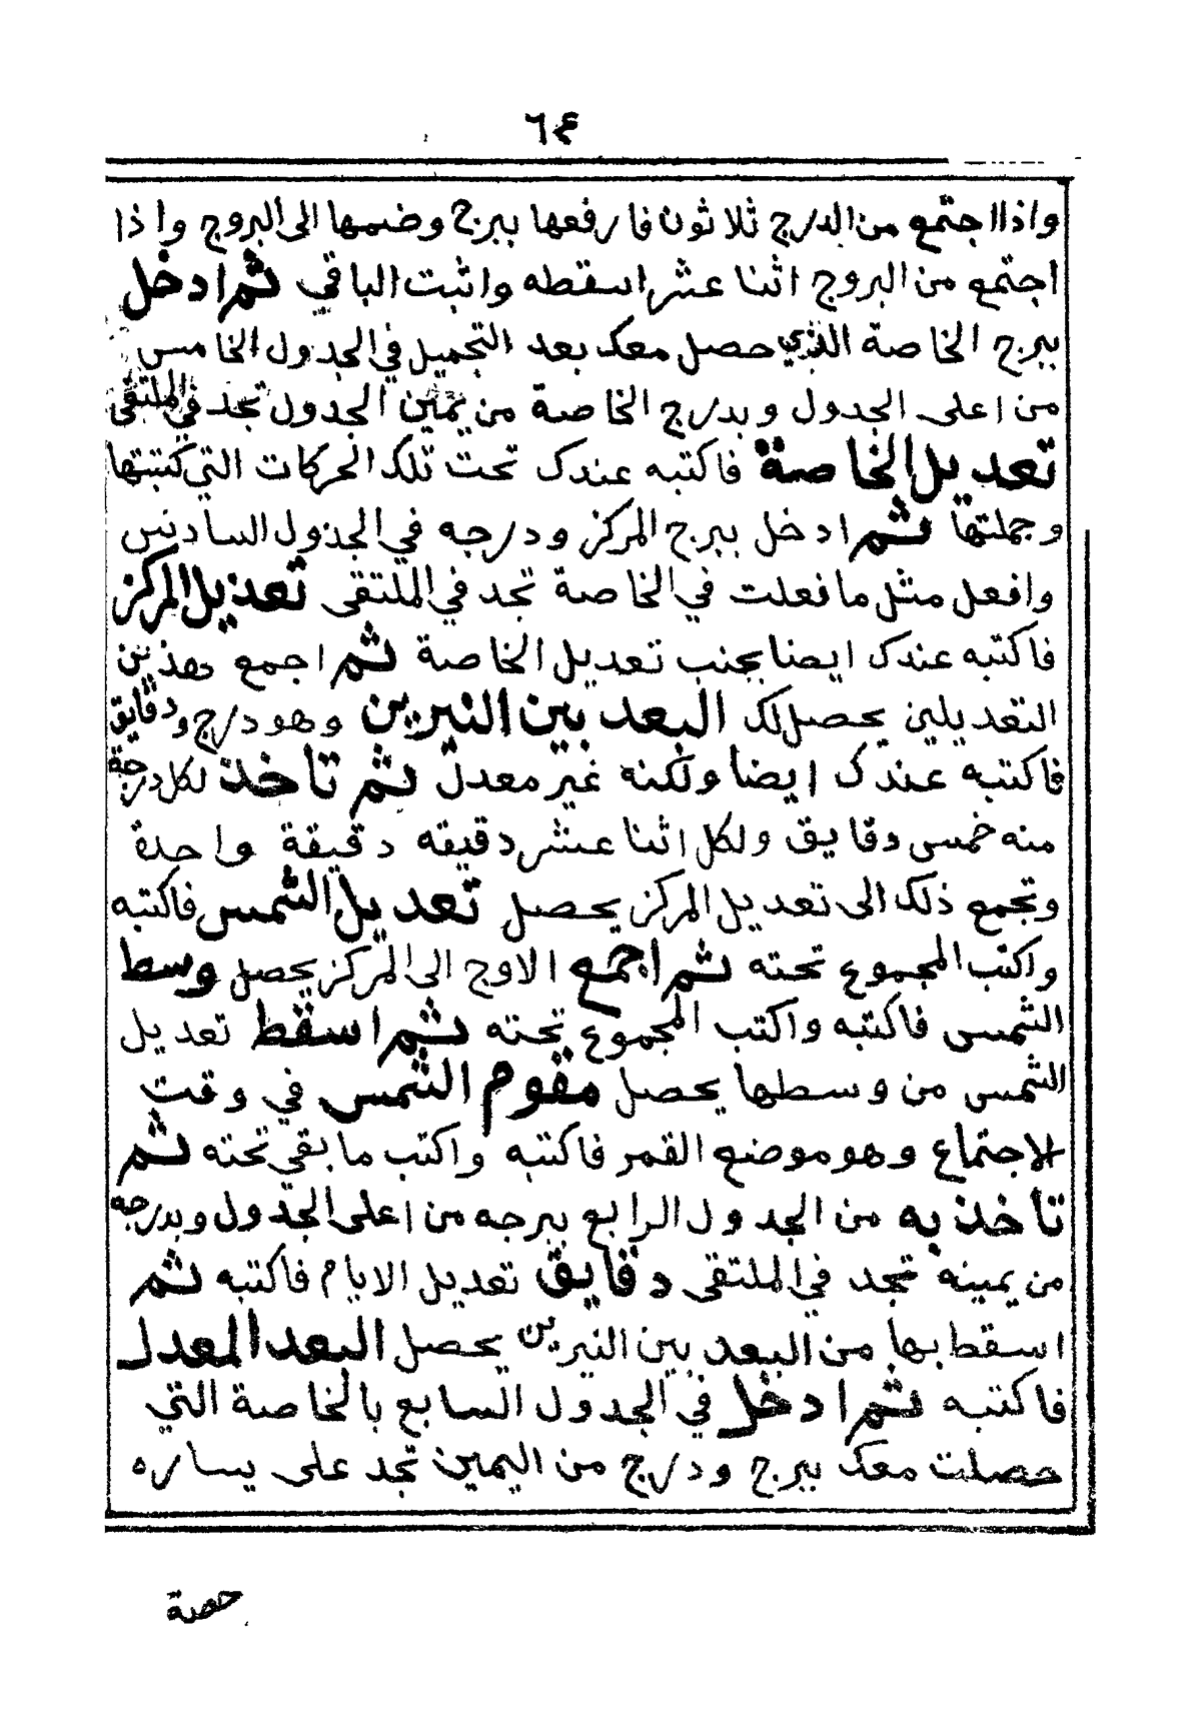 ٦٤
واذا اجتمع من الدرج ثلاثون فارفعها ببرج وضمها الى البروج واذا
اجتمع من البروج اثنا عشر اسقطه واثبت الباقي ثم ادخل
ببرج الخاصة الذي حصل معك بعد التجميل في الجدول الخامس
من اعلى الجدول وبدرج الخاصة من يمين الجدول تجد في الملتقى
تعديل الخاصة فاكتبه عندك تحت تلك الحركات التي كتبتها
وجملتها ثم ادخل ببرج المركز ودرجه في الجدول السادس
وافعل مثل ما فعلت في الخاصة تجد في الملتقى تعديل المركز
فاكتبه عندك ايضا بجنب تعديل الخاصة ثم اجمع هذين
التعديلين يحصل لك البعد بين النيرين وهو درج ودقايق
فاكتبه عندك ايضا ولكنه غير معدل ثم تاخذ لكل درجة
منه خمس دقايق ولكل اثنا عشر دقيقه دقيقة واحدة
وتجمع ذلك الى تعديل المركز يحصل تعديل الشمس فاكتبه
واكتب المجموع تحته ثم اجمع الاوج الى المركز يحصل وسط
الشمس فاكتبه واكتب المجموع تحته ثم اسقط تعديل
الشمس من وسطها يحصل مقوم الشمس في وقت
الاجتماع وهو موضع القمر فاكتبه واكتب ما بقي تحته ثم
تاخذ به من الجدول الرابع ببرجه من اعلى الجدول وبدرجه
من يمينه تجد في الملتقى دقايق تعديل الايام فاكتبه ثم
اسقط بها من البعد بين النيرين يحصل البعد المعدل
فاكتبه ثم ادخل في الجدول السابع بالخاصة التي
حصلت معك ببرج ودرج من اليمين تجد على يساره
حصة